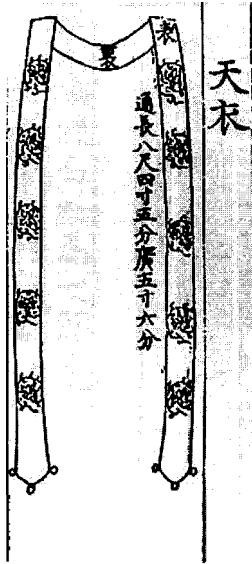 天衣
表
通長八尺四寸五分廣五寸六分
裏